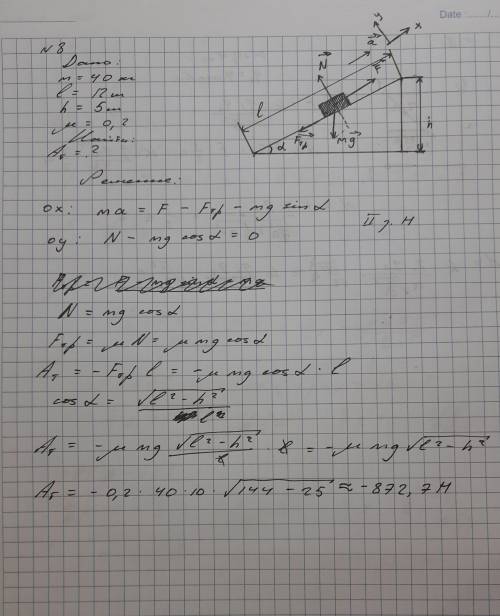 Date ...../..
N 8
Дано:
m = 40 кг
l = 12 m
h = 5 m
μ = 0,2
Найти:
Aт = ?
y
x
a
N
F
l
h
Fтр
mg
α
Решение:
ox: ma = F - Fтр - mg sinα
II з. Н
oy: N - mg cosα = 0
N = mg cosα
Fтр = μN = μmg cosα
Aт = -Fтр l = -μmg cosα · l
cosα = √(l² - h²) / l
Aт = -μmg √(l² - h²) / l · l = -μmg√(l² - h²)
Aт = -0,2 · 40 · 10 · √(144 - 25) ≈ -872,7 Н